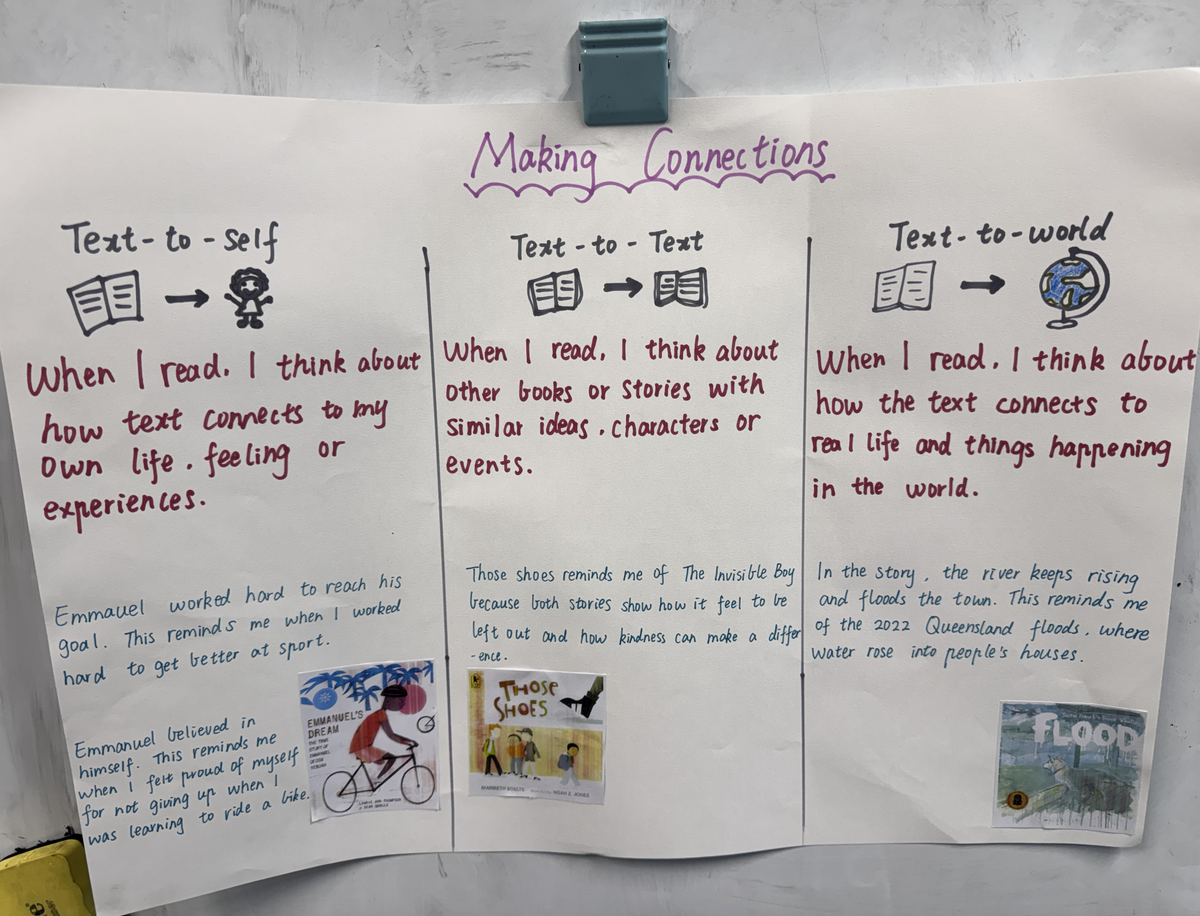 Making Connections
Text-to-self
When I read, I think about
how text connects to my
own life, feeling or
experiences.
Emmauel worked hard to reach his
goal. This reminds me when I worked
hard to get better at sport.
Emmanuel believed in
himself. This reminds me
when I felt proud of myself
for not giving up when I
was learning to ride a bike.
EMMANUEL'S
DREAM
THE TRUE
STORY OF
EMMANUEL
OFOSU
YEBOAH
Text-to-Text
When I read, I think about
other books or stories with
similar ideas, characters or
events.
Those shoes reminds me of The Invisible Boy
because both stories show how it feel to be
left out and how kindness can make a differ
-ence.
THOSE
SHOES
MARIBETH BOELTS
NOAH Z. JONES
Text-to-world
When I read, I think about
how the text connects to
real life and things happening
in the world.
In the story, the river keeps rising
and floods the town. This reminds me
of the 2022 Queensland floods, where
water rose into people's houses.
FLOOD